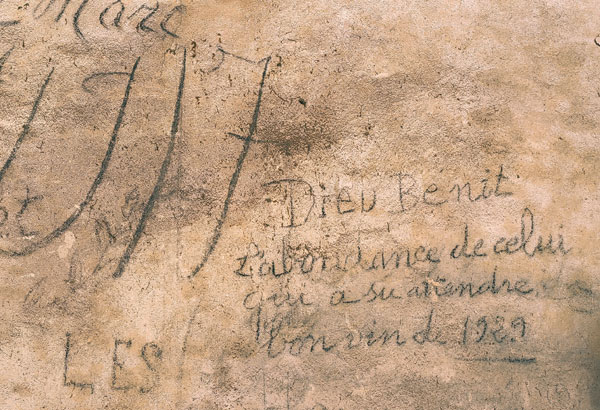 Marc
1917
DIEU Bénit
L'abondance de celui
qui a su attendre
bon vin de 1929
LES